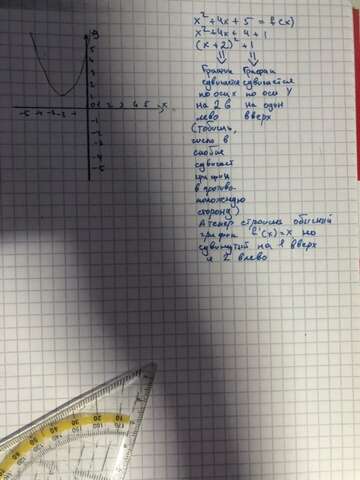 x² + 4x + 5 = f(x)
x² + 4x + 4 + 1
(x + 2)² + 1
График График
сдвигается сдвигается
по оси x по оси Y
на 2 в на один
лево вверх
(тобишь,
число в
скобке
сдвигает
график
в противо-
положную
сторону)
А теперь строишь обычный
график f(x) = x но
сдвинутый на 1 вверх
и 2 влево
y
5
4
3
2
1
-5 -4 -3 -2 -1 0 1 2 3 4 5 x
-1
-2
-3
-4
-5